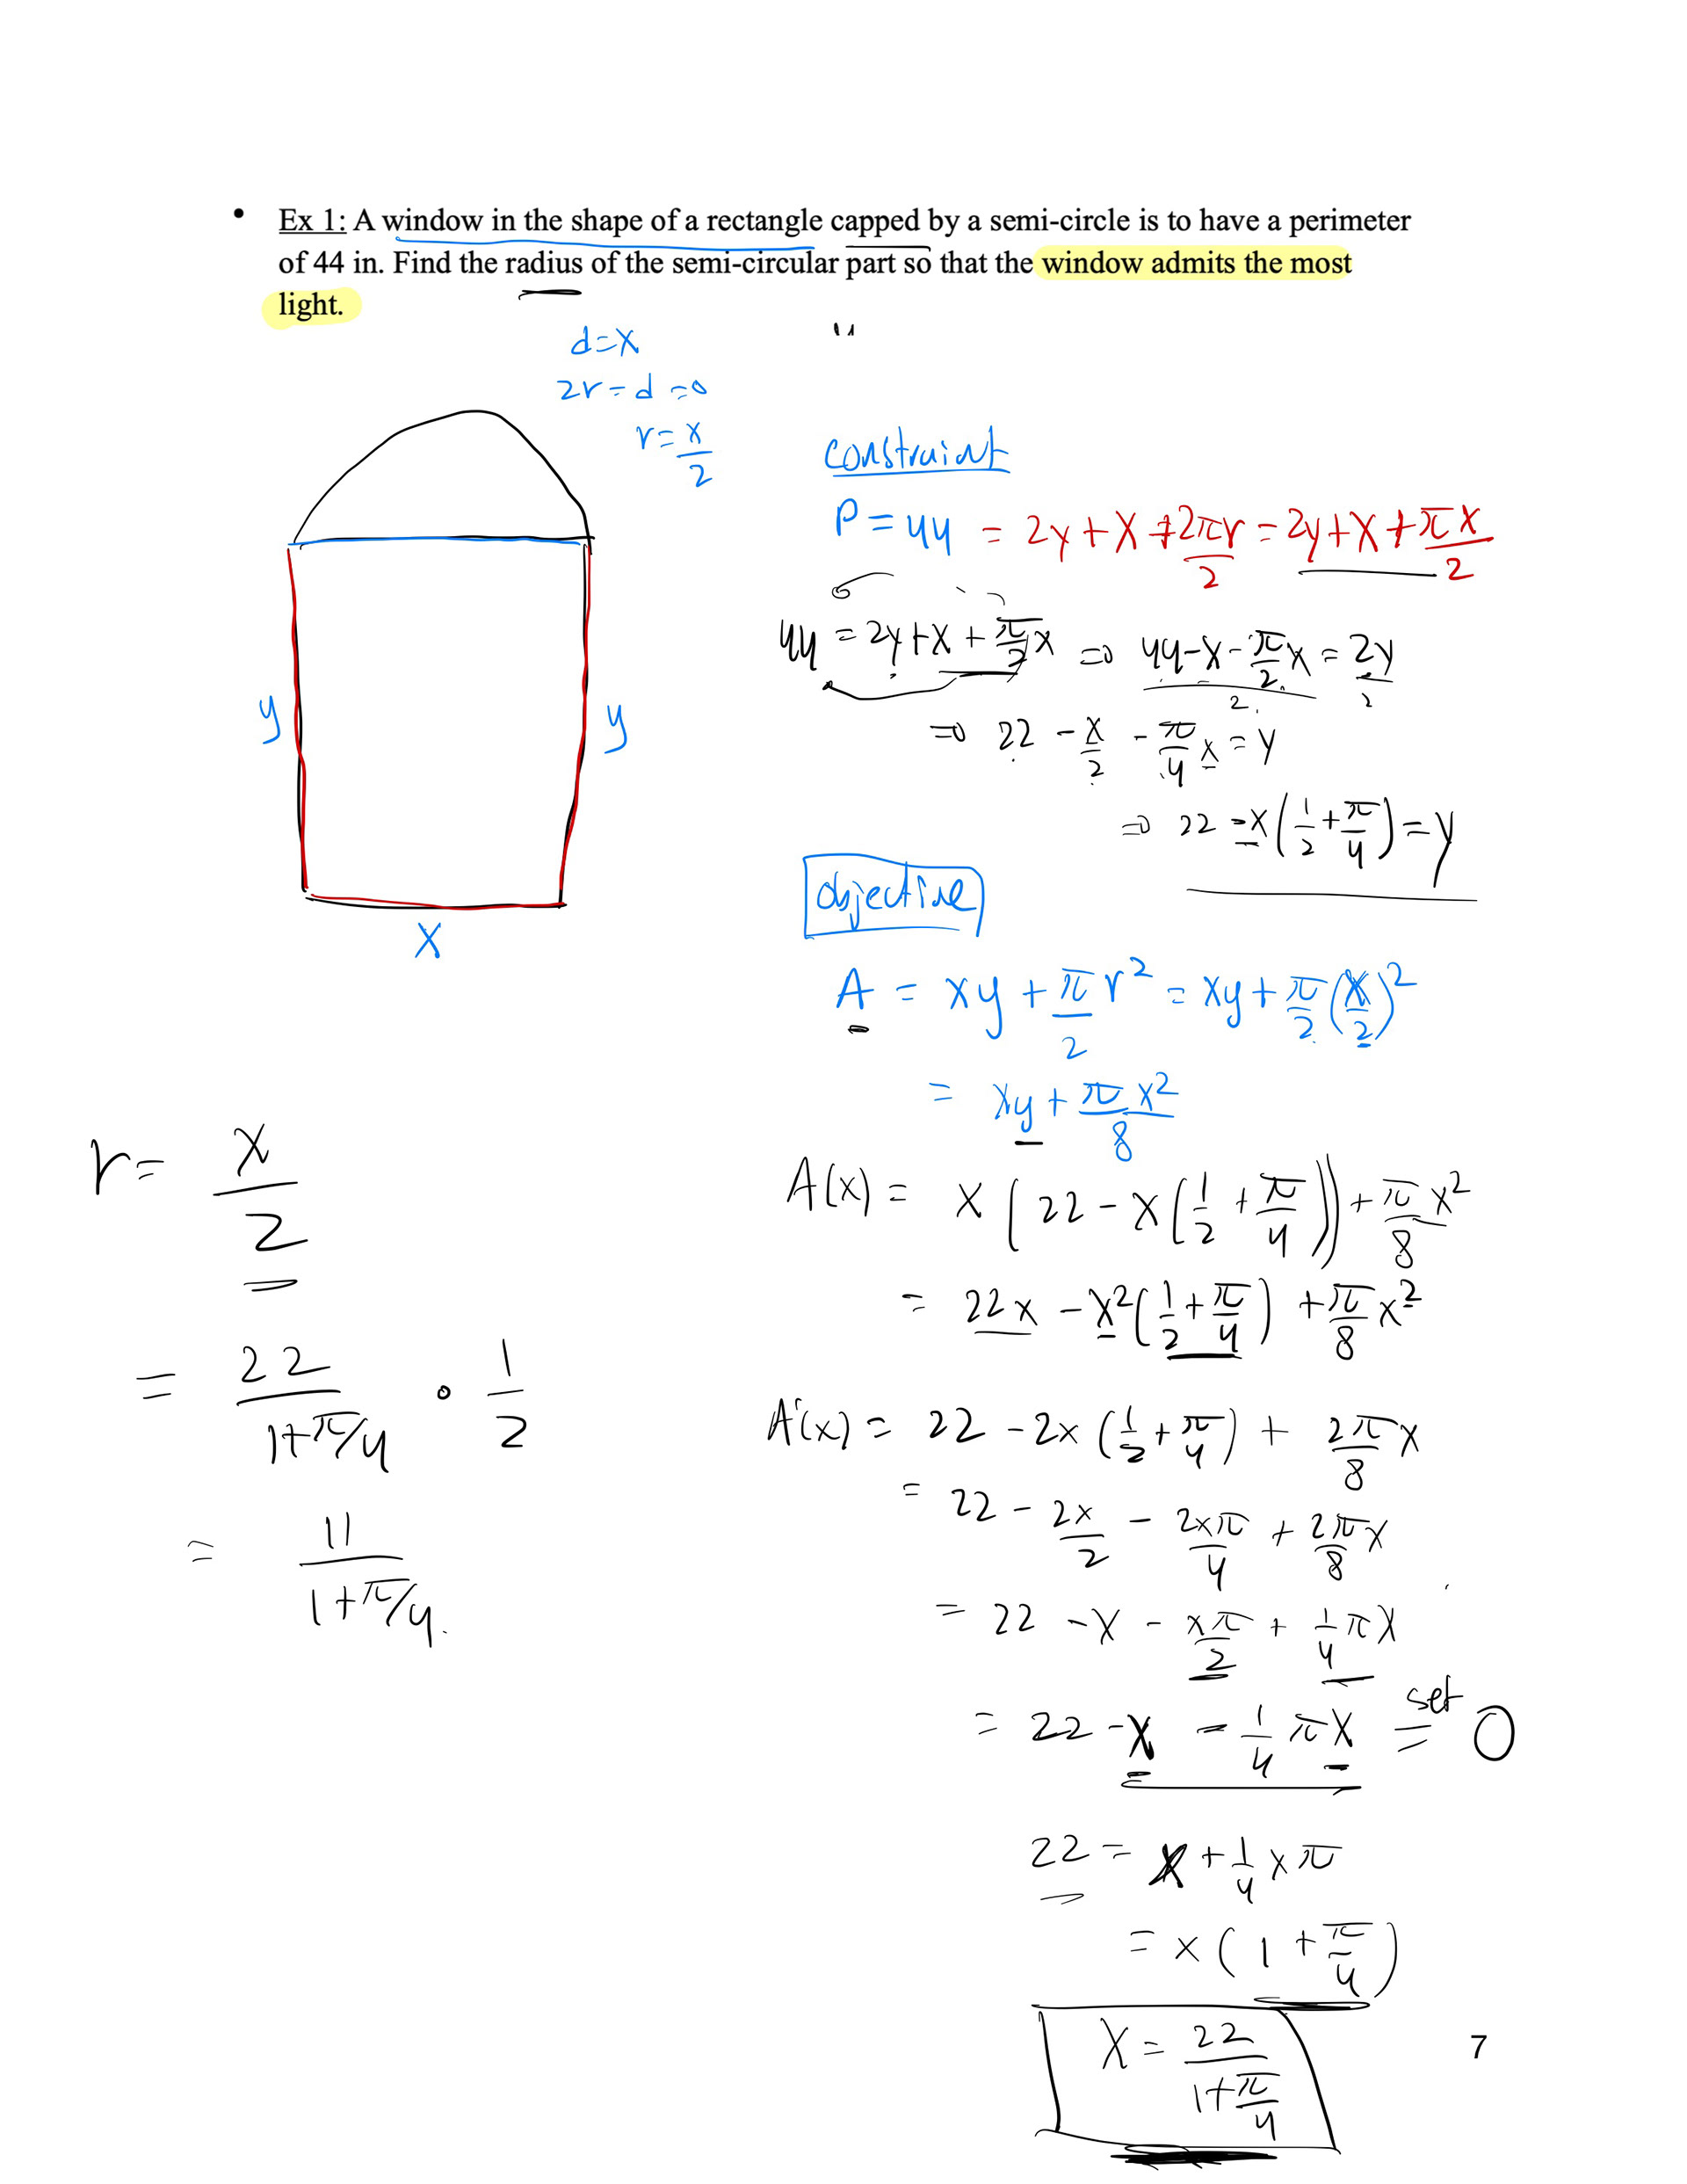 • Ex 1: A window in the shape of a rectangle capped by a semi-circle is to have a perimeter
of 44 in. Find the radius of the semi-circular part so that the window admits the most
light.
d=x
2r=d =0
r=x/2
constraint
P=44 = 2y+x+2πr/2 = 2y+x+πx/2
44 = 2y+x+π/2x => 44-x-π/2x = 2y
2 2
=> 22 - x/2 - π/4x = y
=> 22 -x(1/2+π/4) = y
y
y
x
objective
A = xy + π/2 r² = xy + π/2 (x/2)²
= xy + πx²/8
A(x) = x(22 - x(1/2 + π/4)) + π/8 x²
= 22x - x²(1/2 + π/4) + π/8 x²
A'(x) = 22 - 2x(1/2 + π/4) + 2π/8 x
= 22 - 2x/2 - 2xπ/4 + 2π/8 x
= 22 - x - xπ/2 + 1/4 πx
= 22 - x - 1/4 πx set = 0
22 = x + 1/4 xπ
= x(1 + π/4)
x = 22/(1+π/4)
r = x/2
= 22/(1+π/4) • 1/2
= 11/(1+π/4).
7